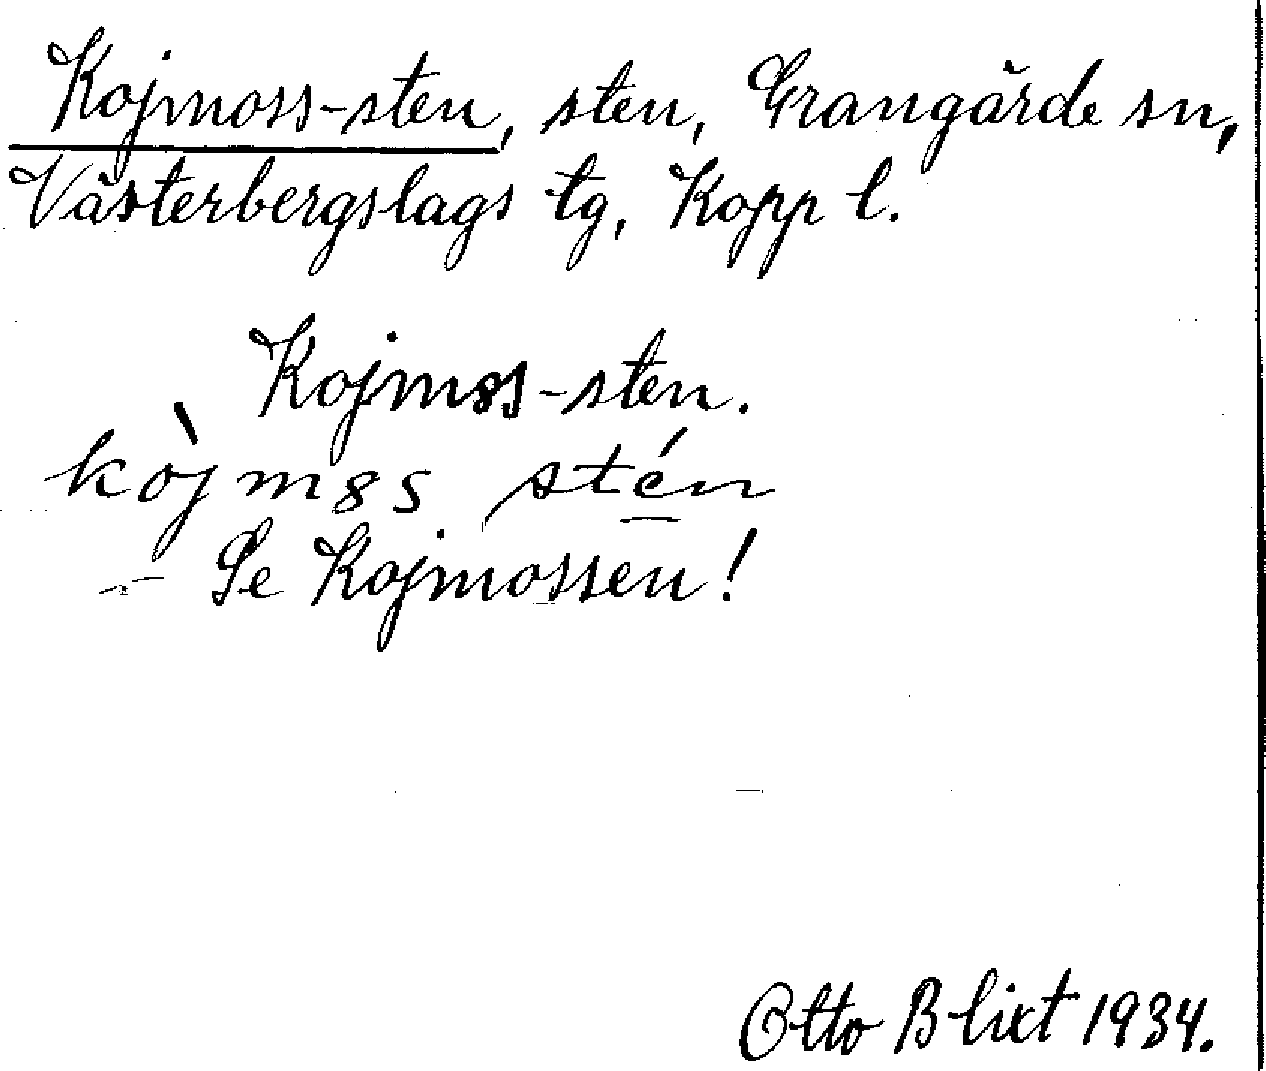 Kojmoss-sten, sten, Grangärde sn,
Västerbergslags tg, Kopp l.
Kojm8s-sten.
kòj m8s stén
- Se Kojmossen!
Otto Blixt 1934.